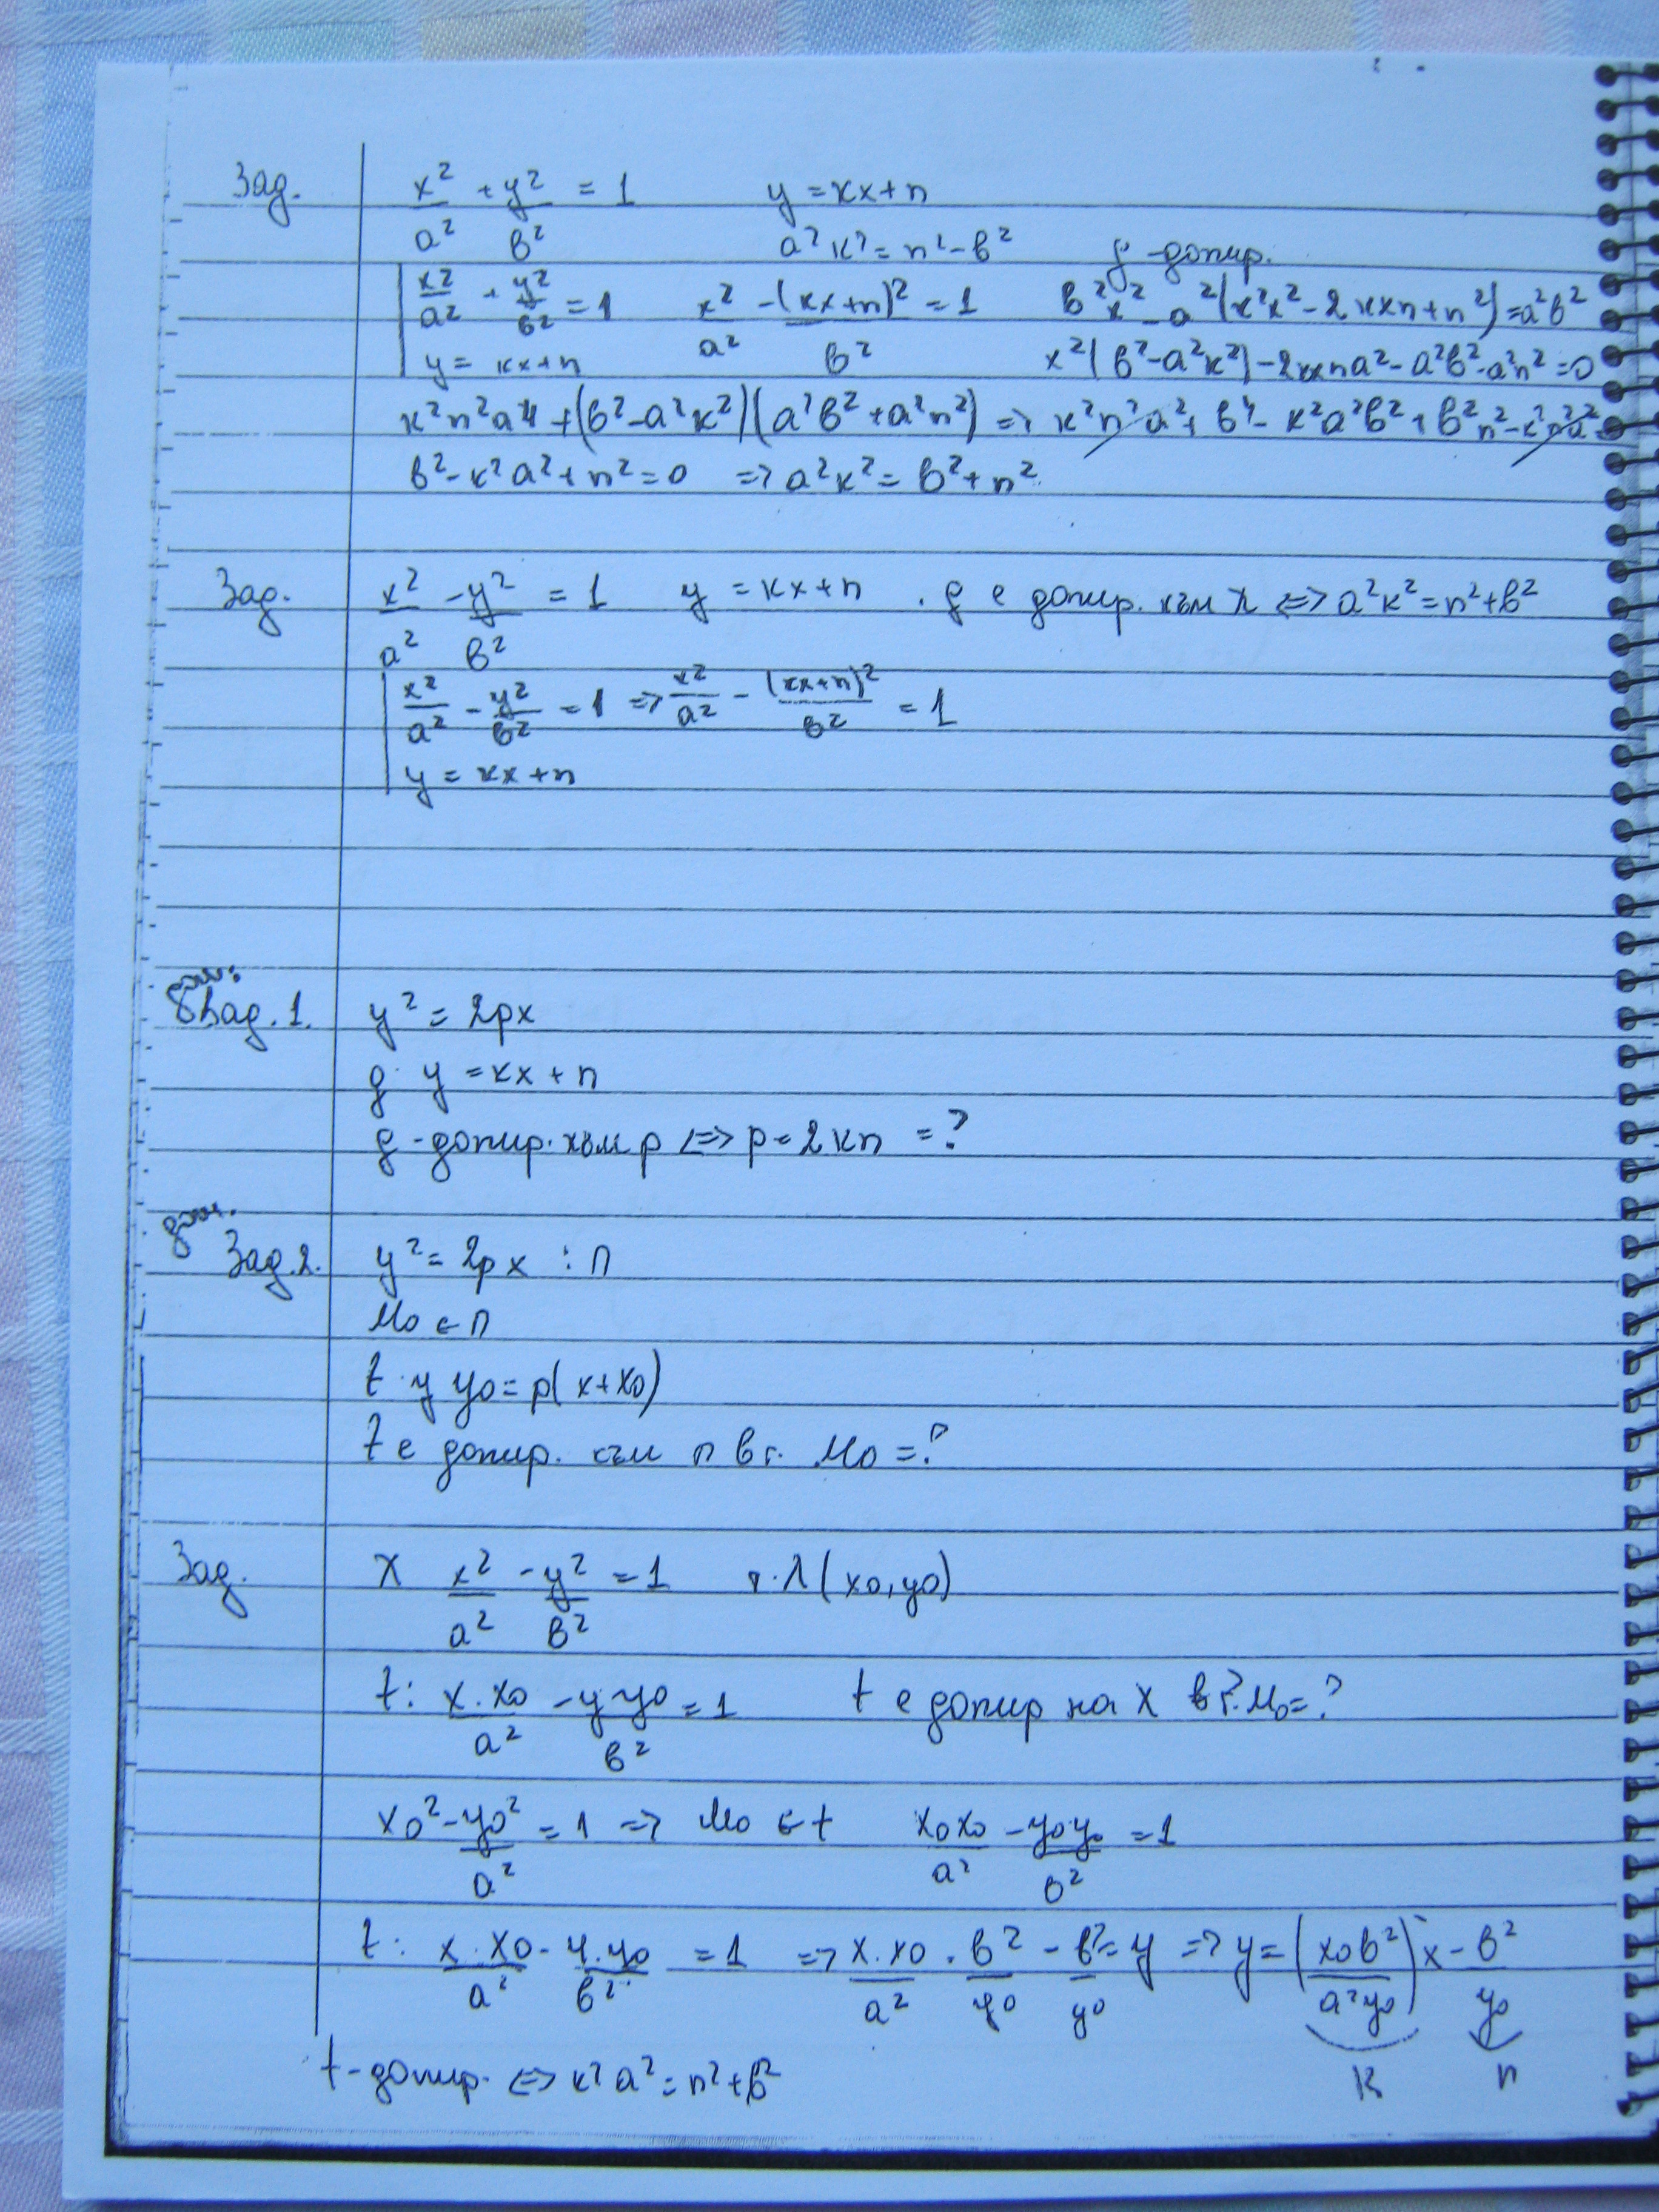 Зад. x²/a² + y²/b² = 1 y = kx+n
a²k² = n² - b² g - допир.
x²/a² + y²/b² = 1 x²/a² - (kx+n)²/b² = 1 b²x² - a²(k²x² - 2kxn + n²) = a²b²
y = kx+n x²(b² - a²k²) - 2kxna² - a²b² - a²n² = 0
k²n²a⁴ + (b² - a²k²)(a²b² + a²n²) => k²n²a² + b⁴ - k²a²b² + b²n² - k²n²a² =
b² - k²a² + n² = 0 => a²k² = b² + n²
Зад. x²/a² - y²/b² = 1 y = kx+n . g е допир. към X <=> a²k² = n² + b²
x²/a² - y²/b² = 1 => x²/a² - (kx+n)²/b² = 1
y = kx+n
дом.
Зад. 1. y² = 2px
g: y = kx+n
g - допир. към p <=> p = 2kn = ?
дом.
Зад. 2. y² = 2px : П
M₀ ∈ П
t: y y₀ = p(x+x₀)
t е допир. към П в т. M₀ = ?
Зад. X x²/a² - y²/b² = 1 (x₀, y₀)
t: x.x₀/a² - y y₀/b² = 1 t е допир на X в т. M₀ = ?
x₀² - y₀²/a² = 1 => M₀ ∈ t x₀x₀/a² - y₀y₀/b² = 1
t: x.x₀/a² - y.y₀/b² = 1 => x.x₀/a² . b²/y₀ - b²/y₀ = y => y = (x₀b²/a²y₀) x - b²/y₀
k n
t - допир. <=> k²a² = n² + b²